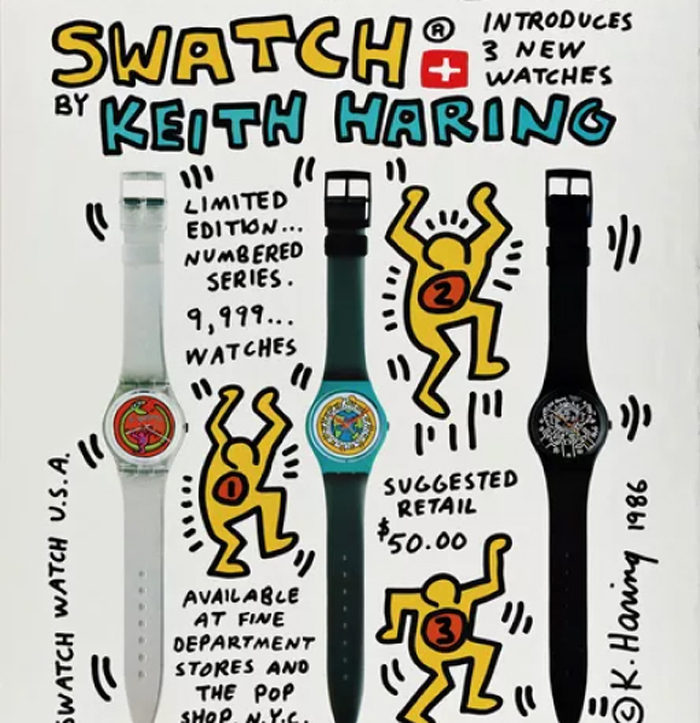 SWATCH®
INTRODUCES
3 NEW
WATCHES
BY KEITH HARING
LIMITED
EDITION...
NUMBERED
SERIES.
9,999...
WATCHES
2
1
SUGGESTED
RETAIL
$50.00
3
AVAILABLE
AT FINE
DEPARTMENT
STORES AND
THE POP
SHOP, N.Y.C.
SWATCH WATCH U.S.A.
© K. Haring 1986